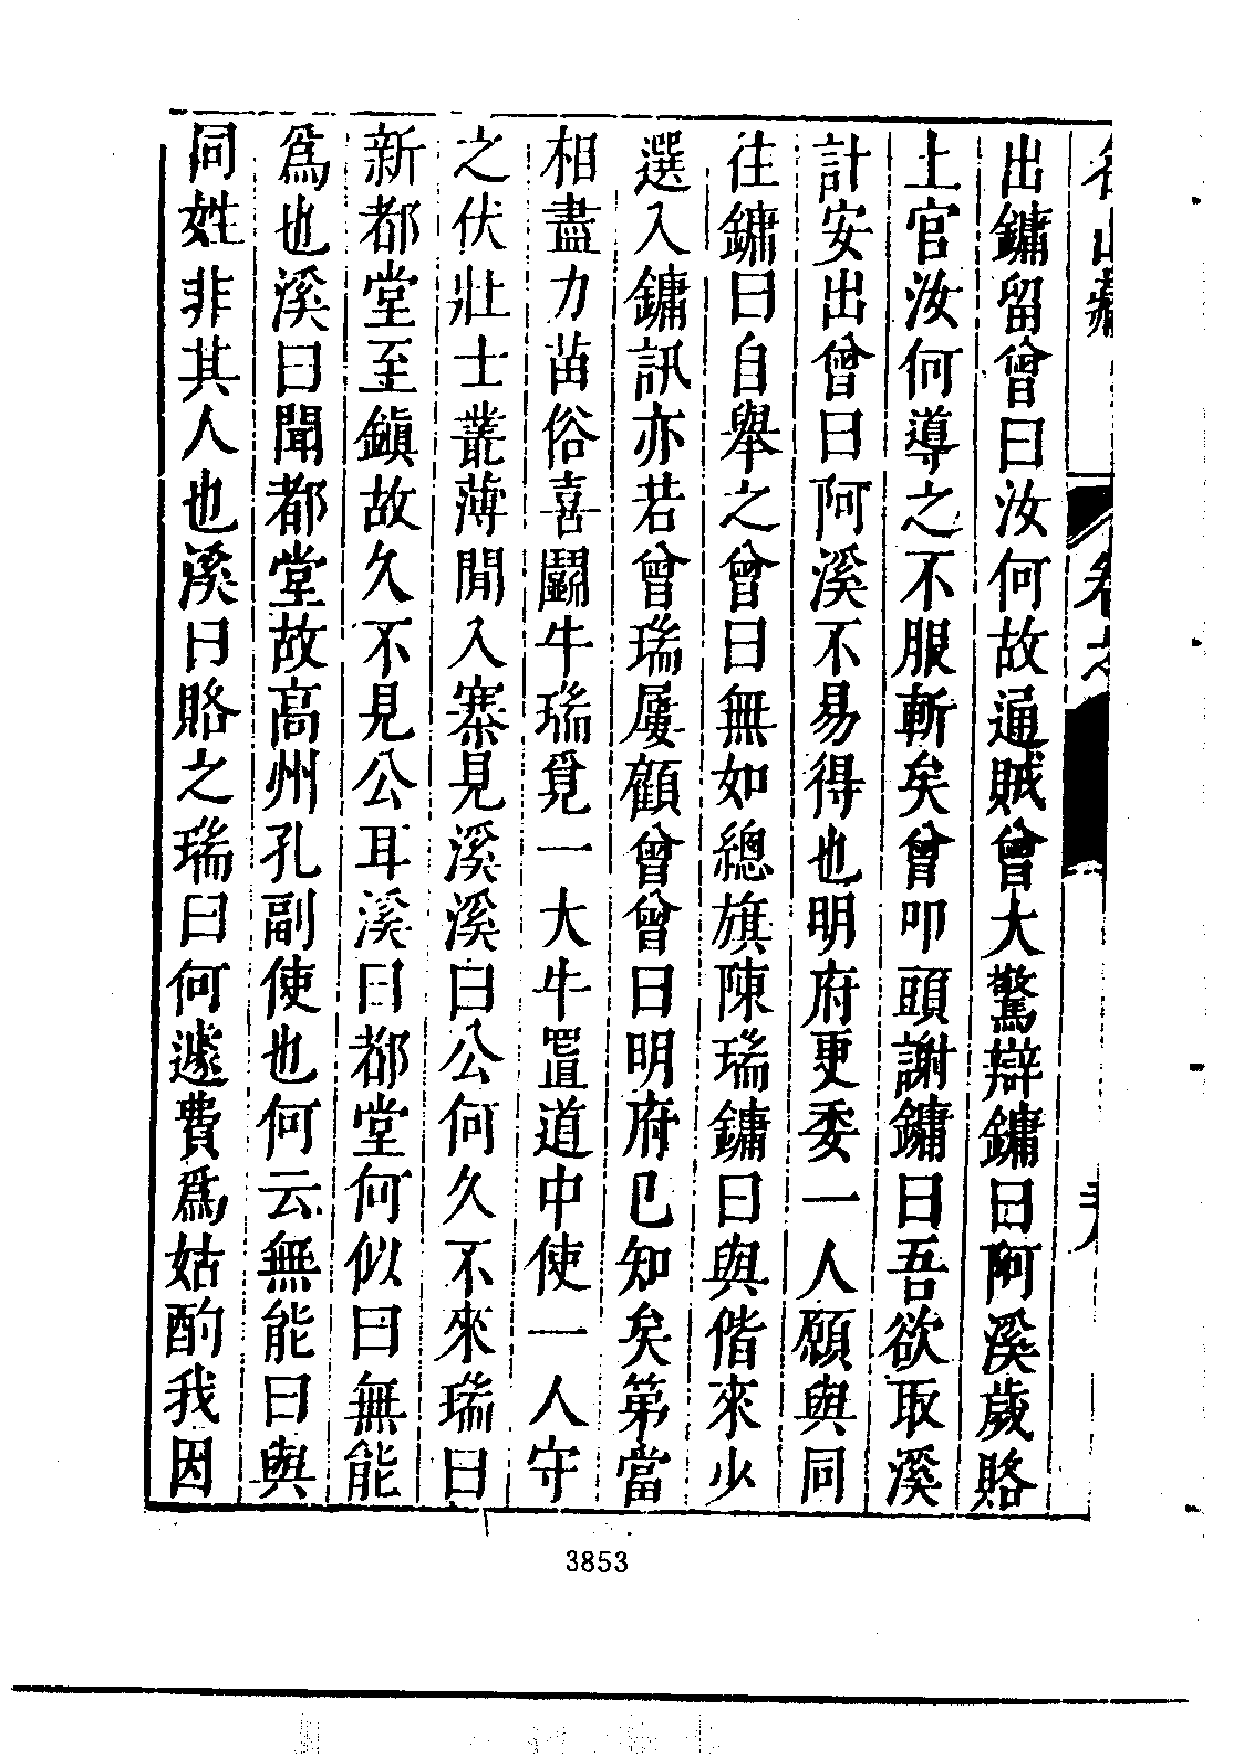 出鏞留曾曰汝何故逼賊曾大驚辯鏞曰阿溪歲賂
土官汝何導之不服斬矣曾叩頭謝鏞曰吾欲取溪
計安出曾曰阿溪不易得也明府更委一人願與同
往鏞曰自舉之曾曰無如總旗陳瑞鏞曰與偕來少
選入鏞訊亦若曾瑞屢顧曾曾曰明府已知矣第當
相盡力苗俗喜鬭牛瑞覓一大牛置道中使一人守
之伏壯士叢薄間入寨見溪溪曰公何久不來瑞曰
新都堂至鎭故久不見公耳溪曰都堂何似曰無能
爲也溪曰聞都堂故高州孔副使也何云無能曰與
同姓非其人也溪曰賂之瑞曰何遽費爲姑酌我因
3853